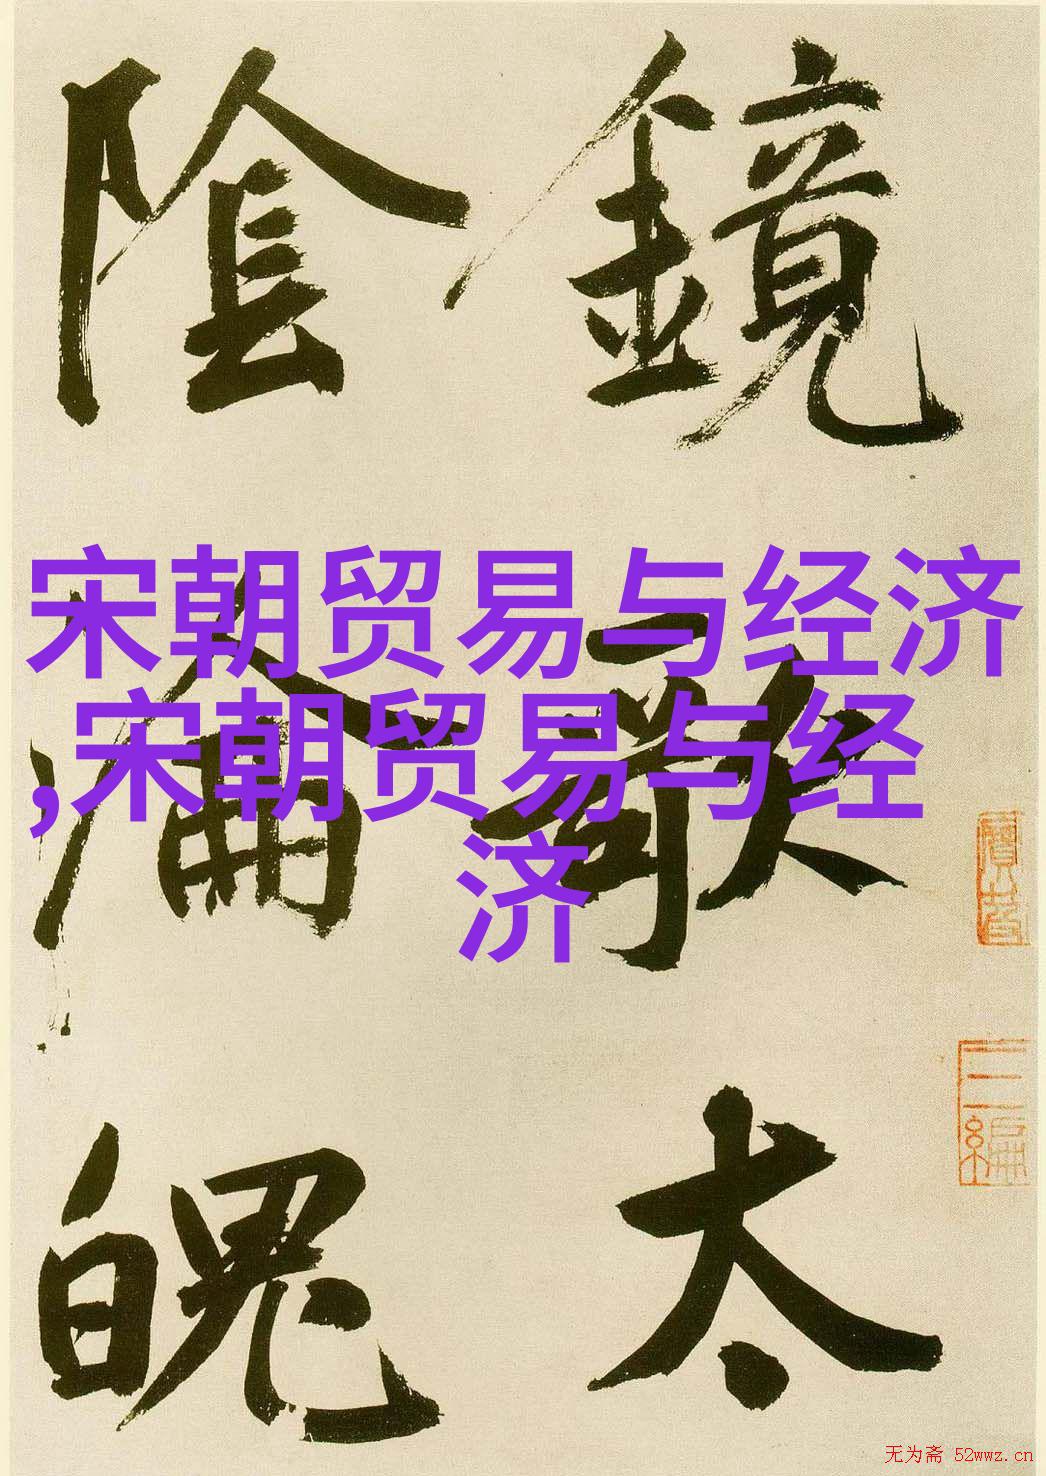 宋朝贸易与经济
,宋朝贸易与经
济
鏡歌太
陰淪魄
无为斋 52wwz.cn